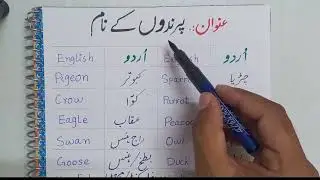 عنوان: پرندوں کے نام
English اُردو English اُردو
Pigeon کبوتر Sparr چڑیا
Crow کوّا Parrot
Eagle عقاب Peacoc
Swan راج ہنس Owl
Goose بطخ/ہنس Duck